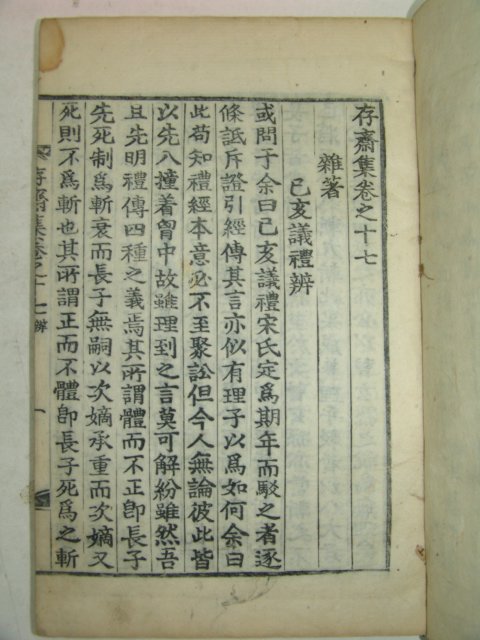 存齋集卷之十七
雜著
己亥議禮辨
或問于余曰己亥議禮宋氏定爲期年而駁之者逐
條詆斥證引經傳其言亦似有理子以爲如何余曰
此苟知禮經本意必不至聚訟但今人無論彼此皆
以先入撞着胷中故雖理到之言莫可解紛雖然吾
且先明禮傳四種之義焉其所謂體而不正卽長子
先死制爲斬衰而長子無嗣以次嫡承重而次嫡又
死則不爲斬也其所謂正而不體卽長子死爲之斬
存齋集卷之十七 辨 一